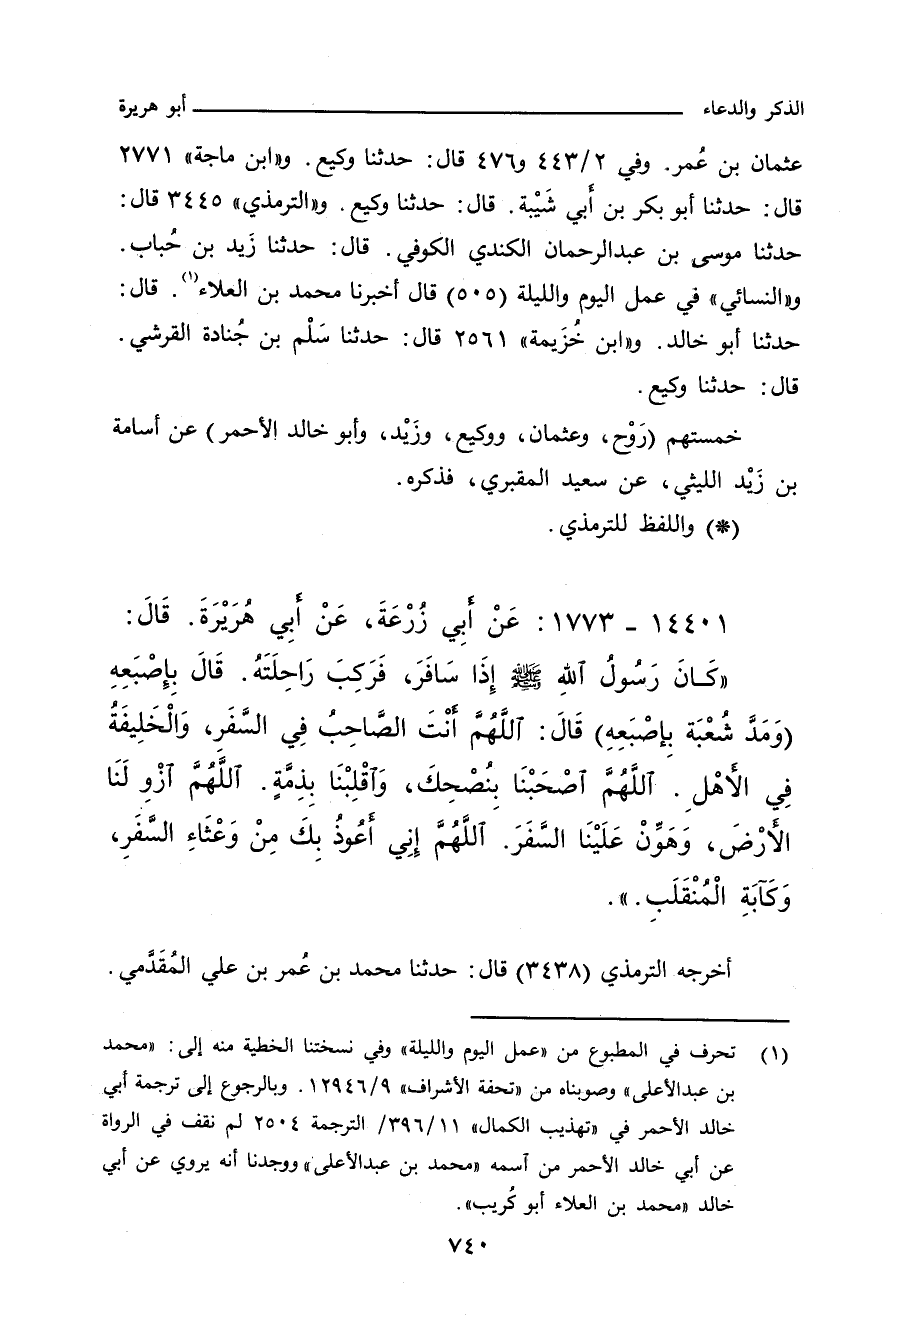 الذكر والدعاء ــــــــــــــــــــــــــــــــــــــــ أبو هريرة
عثمان بن عُمر. وفي ٤٤٣/٢ و٤٧٦ قال: حدثنا وكيع. و«ابن ماجة» ٢٧٧١
قال: حدثنا أبو بكر بن أَبي شَيْبة. قال: حدثنا وكيع. و«الترمذي» ٣٤٤٥ قال:
حدثنا موسى بن عبدالرحمان الكندي الكوفي. قال: حدثنا زَيد بن حُباب.
و«النسائي» في عمل اليوم والليلة (٥٠٥) قال أخبرنا محمد بن العلاء(١). قال:
حدثنا أبو خالد. و«ابن خُزَيمة» ٢٥٦١ قال: حدثنا سَلْم بن جُنادة القرشي.
قال: حدثنا وكيع.
خمستهم (رَوْح، وعثمان، ووكيع، وزَيْد، وأبو خالد الأحمر) عن أسامة
بن زَيْد الليثي، عن سعيد المقبري، فذكره.
(*) واللفظ للترمذي.
١٤٤٠١ - ١٧٧٣: عَنْ أَبي زُرْعَةَ، عَنْ أَبي هُرَيْرَةَ. قَالَ:
«كَانَ رَسُولُ ٱللهِ ﷺ إِذَا سَافَرَ، فَرَكِبَ رَاحِلَتَهُ. قَالَ بِإِصْبَعِهِ
(وَمَدَّ شُعْبَة بِإِصْبَعِهِ) قَالَ: ٱللَّهُمَّ أَنْتَ الصَّاحِبُ فِي السَّفَرِ، وَالْخَلِيفَةُ
فِي الأَهْلِ. ٱللَّهُمَّ ٱصْحَبْنَا بِنُصْحِكَ، وَٱقْلِبْنَا بِذِمَّةٍ. ٱللَّهُمَّ ٱزْوِ لَنَا
الأَرْضَ، وَهَوِّنْ عَلَيْنَا السَّفَرَ. ٱللَّهُمَّ إِنِي أَعُوذُ بِكَ مِنْ وَعْثَاءِ السَّفَرِ،
وَكَآبَةِ الْمُنْقَلَبِ.».
أخرجه الترمذي (٣٤٣٨) قال: حدثنا محمد بن عُمر بن علي المُقَدَّمي.
(١) تحرف في المطبوع من «عمل اليوم والليلة» وفي نسختنا الخطية منه إلى: «محمد
بن عبدالأعلى» وصوبناه من «تحفة الأشراف» ١٢٩٤٦/٩. وبالرجوع إلى ترجمة أبي
خالد الأحمر في «تهذيب الكمال» ٣٩٦/١١/ الترجمة ٢٥٠٤ لم نقف في الرواة
عن أبي خالد الأحمر من ٱسمه «محمد بن عبدالأعلى» ووجدنا أنه يروي عن أبي
خالد «محمد بن العلاء أبو كُريب».
٧٤٠